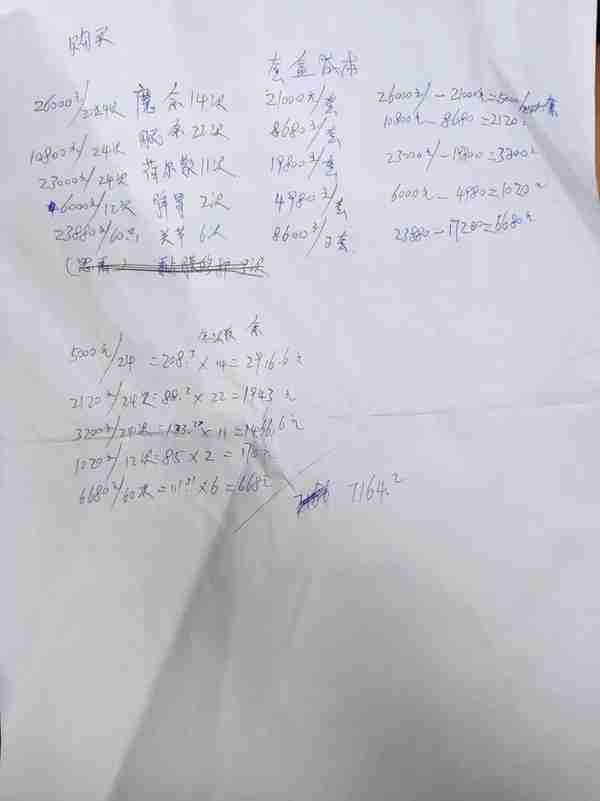 购买
套盒成本
26000元/24次 魔余14次 21000元/套 26000元/-21000元=5000/套
10800元/24次 眼余22次 8680元/套 10800元-8680=2120元
23000元/24次 荷尔蒙11次 19800元/套 23000元/-19800=3200元
6000元/12次 2次 4980元/套 6000元-4980=1020元
23880元/60次 关节6次 8600元/2套 23880-17200=6680元
余
5000元/24=208.3×14=2916.6元
2120元/24次=88.3×22=1943元
3200元/24次=133.3×11=1466.6元
1020元/12次=85×2=170元
6680元/60次=111.31×6=668元
7164.2